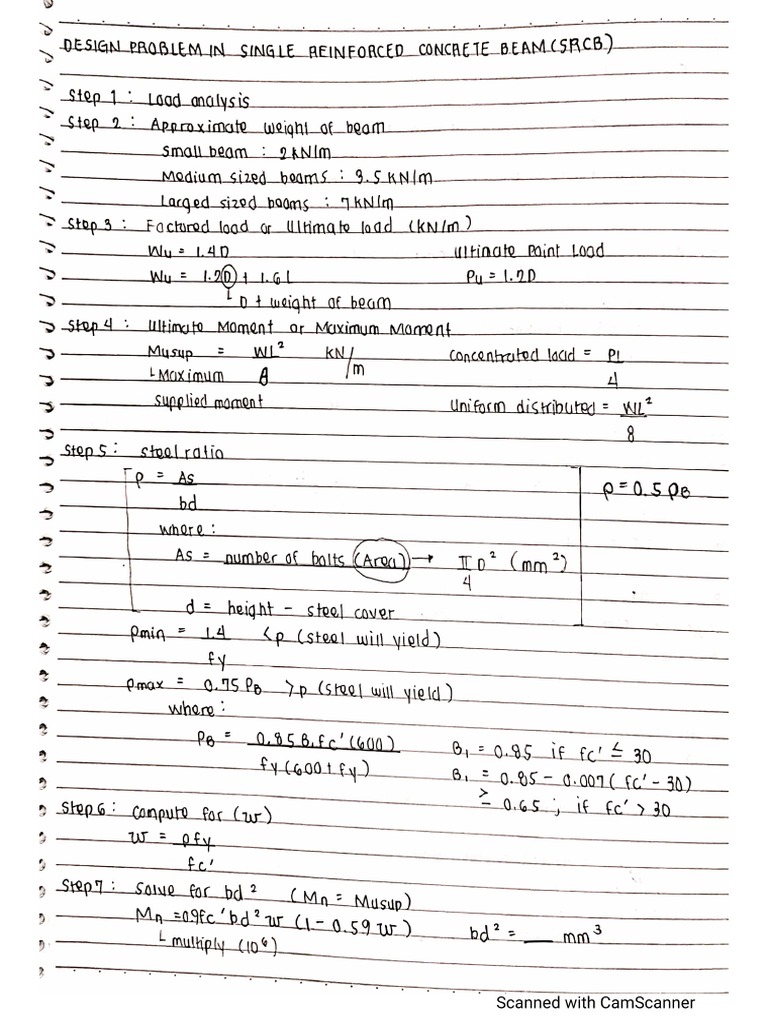 DESIGN PROBLEM IN SINGLE REINFORCED CONCRETE BEAM (SRCB)
Step 1 : Load analysis
Step 2 : Approximate weight of beam
Small beam : 2 kN/m
Medium sized beams : 3.5 kN/m
Larged sized beams : 7 kN/m
Step 3 : Factured load or Ultimate load (kN/m)
Wu = 1.4D Ultimate Point Load
Wu = 1.2D + 1.6L Pu = 1.2D
└ D + weight of beam
Step 4 : Ultimate Moment or Maximum Moment
Musup = WL²/8 kN/m Concentrated load = PL/4
└ Maximum supplied moment Uniform distributed = WL²/8
Step 5 : Steel ratio
ρ = As/bd ρ = 0.5 ρB
where :
As = number of bolts (Area) → π/4 D² (mm²)
d = height - steel cover
ρmin = 1.4/fy < ρ (steel will yield)
ρmax = 0.75 ρB > ρ (steel will yield)
where :
ρB = 0.85 B₁ fc' (600) / fy (600 + fy) B₁ = 0.85 if fc' ≤ 30
B₁ = 0.85 - 0.007 ( fc' - 30)
≥ 0.65 ; if fc' > 30
Step 6 : Compute for (w)
w = ρfy/fc'
Step 7 : Solve for bd² (Mn = Musup)
Mn = 0.9fc' bd² w (1 - 0.59 w) bd² = __ mm³
└ multiply (10⁶)
Scanned with CamScanner